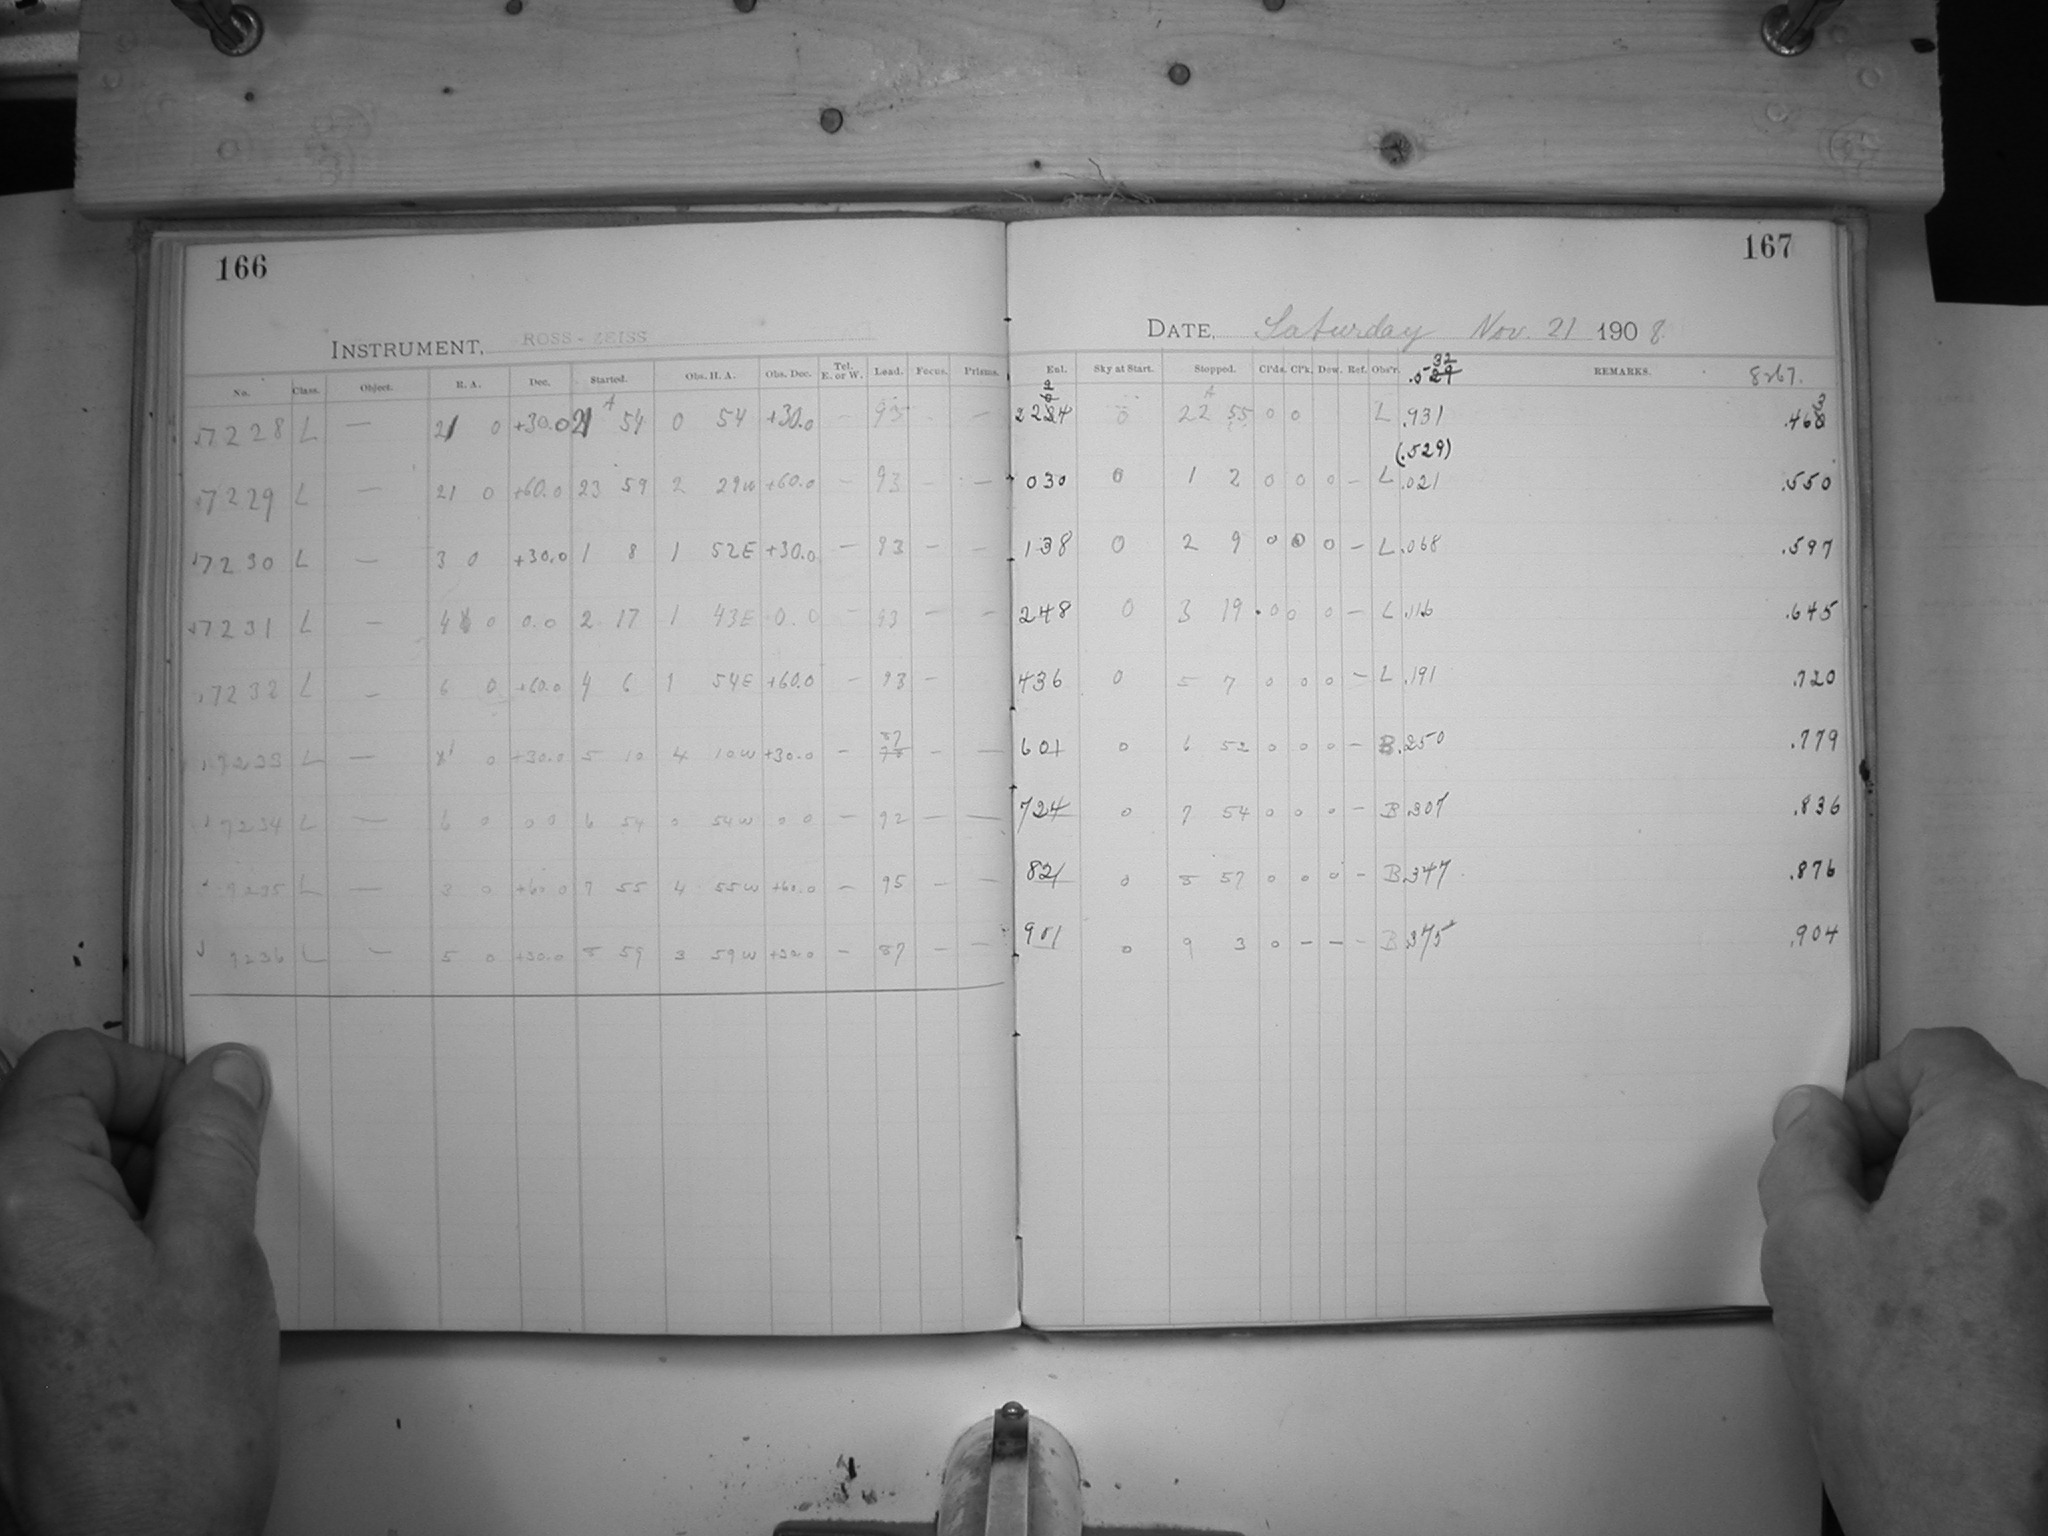 166
167
INSTRUMENT, ROSS-ZEISS
DATE, Saturday Nov. 21 1908
No. Class. Object. R. A. Dec. Started. Obs. H. A. Obs. Dec. Tel. E. or W. Lead. Focus. Prisms.
Ent. Sky at Start. Stopped. Cl'ds. Cl'k. Dew. Ref. Obs'r. .529 32 REMARKS. 8267.
7228 L — 21 0 +30.0 21 54 0 54 +30.0 — 93 — —
0 22 55 0 0 L .931 .468 3
(.529)
7229 L — 21 0 +60.0 23 59 2 29w +60.0 — 93 — —
030 0 1 2 0 0 0 — L .021 .550
7230 L — 3 0 +30.0 1 8 1 52E +30.0 — 93 — —
138 0 2 9 0 0 0 — L .068 .597
7231 L — 4 0 0.0 2 17 1 43E 0.0 — 93 — —
248 0 3 19 0 0 0 — L .116 .645
7232 L — 6 0 +60.0 4 6 1 54E +60.0 — 93 —
436 0 5 7 0 0 0 — L .191 .720
7233 L — 1 0 +30.0 5 10 4 10w +30.0 — 87 — —
601 0 6 52 0 0 0 — B .250 .779
7234 L — 6 0 0 0 6 54 0 54w 0 0 — 92 — —
724 0 7 54 0 0 0 — B .307 .836
7235 L — 3 0 +60.0 7 55 4 55w +60.0 — 95 — —
821 0 8 57 0 0 0 — B .347 .876
7236 L — 5 0 +30.0 8 59 3 59w +30.0 — 87 — —
901 0 9 3 0 — — — B .375 .904